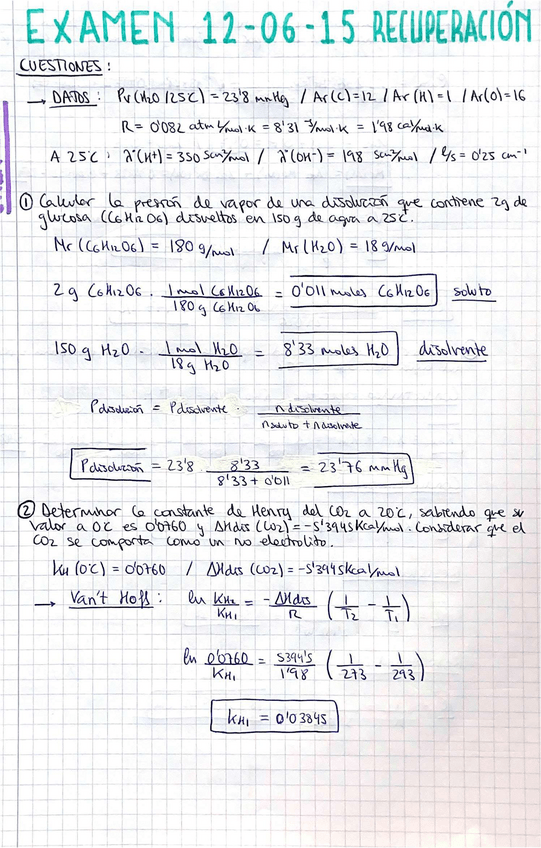 EXAMEN 12-06-15 RECUPERACIÓN
CUESTIONES:
→ DATOS: Pv(H2O/25ºC) = 23'8 mmHg / Ar(C)=12 / Ar(H)=1 / Ar(O)=16
R = 0'082 atm·l/mol·K = 8'31 J/mol·K = 1'98 cal/mol·K
A 25ºC: λ°(H+) = 350 Scm²/mol / λ°(OH-) = 198 Scm²/mol / l/s = 0'25 cm⁻¹
① Calcular la presión de vapor de una disolución que contiene 2g de
glucosa (C6H12O6) disueltos en 150g de agua a 25ºC.
Mr(C6H12O6) = 180 g/mol / Mr(H2O) = 18 g/mol
2g C6H12O6 · 1 mol C6H12O6 / 180 g C6H12O6 = 0'011 moles C6H12O6 soluto
150 g H2O · 1 mol H2O / 18 g H2O = 8'33 moles H2O disolvente
Pdisolución = Pdisolvente · ndisolvente / nsoluto + ndisolvente
Pdisolución = 23'8 · 8'33 / 8'33 + 0'011 = 23'76 mmHg
② Determinar la constante de Henry del CO2 a 20ºC, sabiendo que su
valor a 0ºC es 0'0760 y ΔHdis (CO2) = -5'3945 Kcal/mol. Considerar que el
CO2 se comporta como un no electrolito.
KH (0ºC) = 0'0760 / ΔHdis (CO2) = -5'3945 Kcal/mol
→ Van't Hoff: ln KH2/KH1 = -ΔHdis/R (1/T2 - 1/T1)
ln 0'0760/KH1 = 5394'5/1'98 (1/273 - 1/293)
KH1 = 0'03845